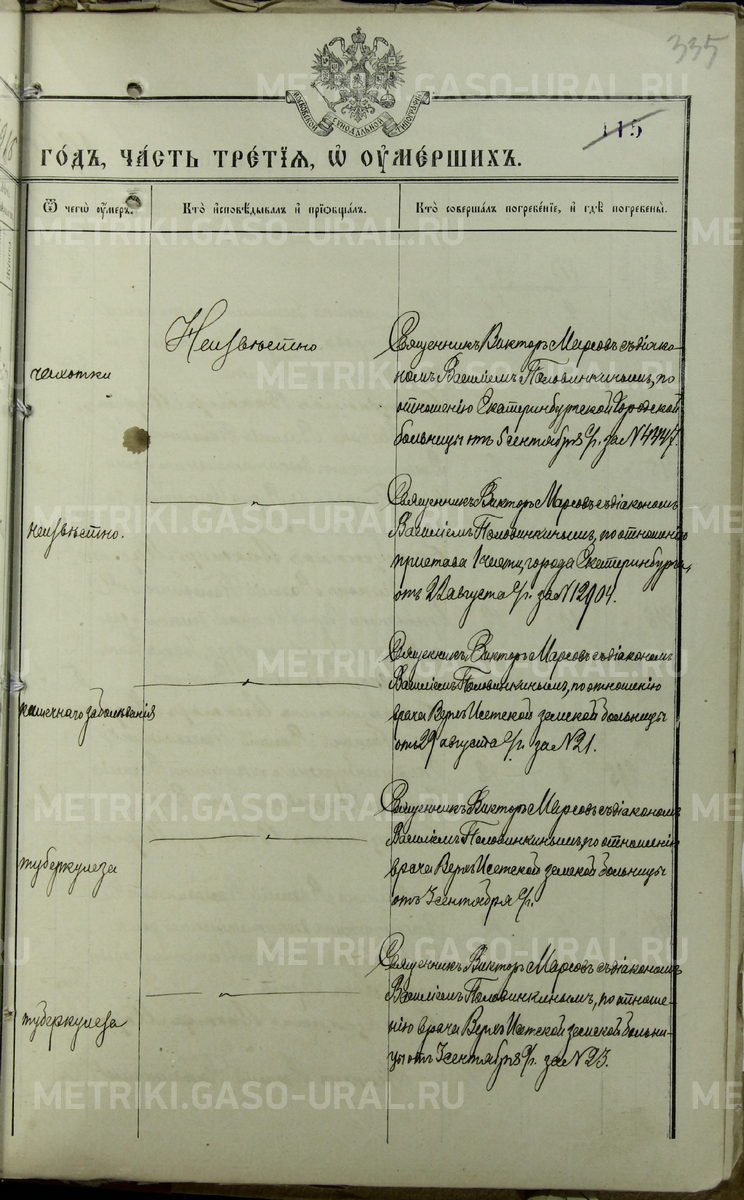 335
МОСКОВСКОЙ СѴНОДАЛЬНОЙ ТИПОГРАФІИ
115
ГОДЪ, ЧАСТЬ ТРЕТІЯ, Ѡ ОУМЕРШИХЪ.
Ѿ чегѡ оумеръ.
Кто исповѣдывалъ и пріобщалъ.
Кто совершалъ погребеніе, и гдѣ погребены.
чахотки
Неизвѣстно
Священникъ Викторъ Марсовъ съ діако-
номъ Василіемъ Половинкинымъ, по
отношенію Екатеринбургской Городской
больницы отъ 5 сентября с/г. за №4447.
неизвѣстно.
— " —
Священникъ Викторъ Марсовъ съ діакономъ
Василіемъ Половинкинымъ, по отношенію
пристава 1 части города Екатеринбурга,
отъ 22 августа с/г. за №12904.
кишечнаго заболѣванія
— " —
Священникъ Викторъ Марсовъ съ діакономъ
Василіемъ Половинкинымъ, по отношенію
врача Верхъ Исетской земской больницы
отъ 29 августа с/г. за №21.
туберкулеза
— " —
Священникъ Викторъ Марсовъ съ діакономъ
Василіемъ Половинкинымъ по отношенію
врача Верхъ Исетской земской больницы
отъ 3 сентября с/г.
туберкулеза
— " —
Священникъ Викторъ Марсовъ съ діакономъ
Василіемъ Половинкинымъ, по отноше-
нію врача Верхъ Исетской земской больни-
цы отъ 3 сентября с/г. за №23.
METRIKI.GASO-URAL.RU